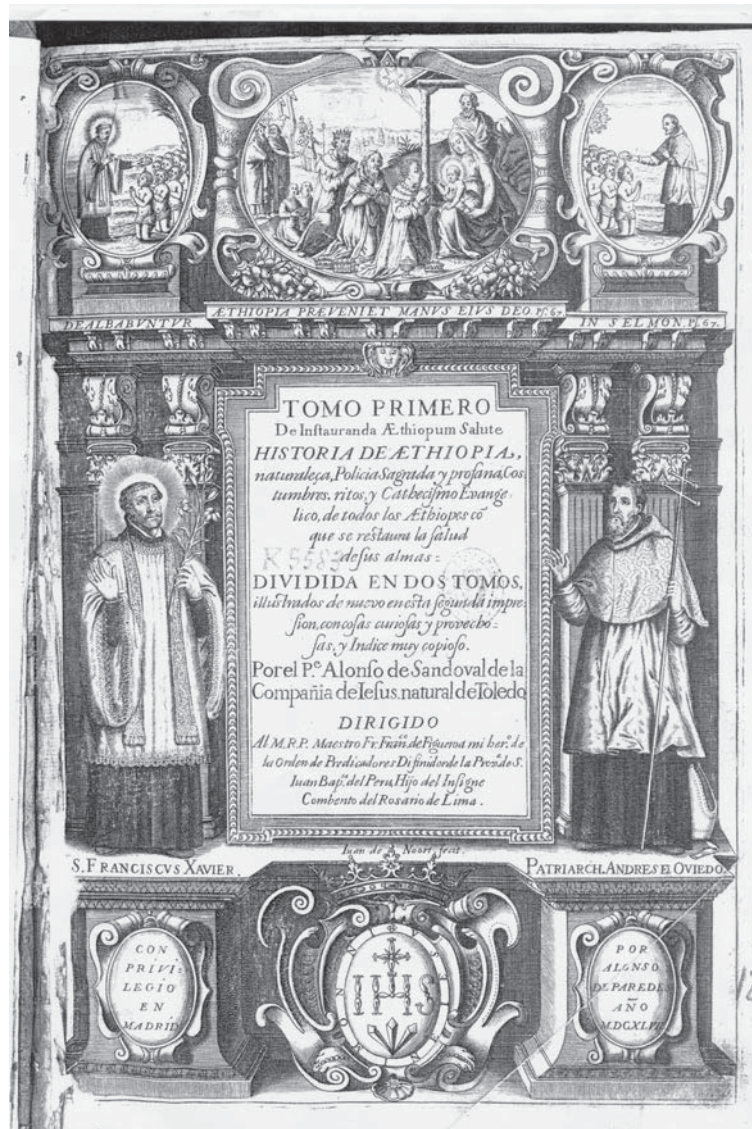 ÆTHIOPIA PRÆVENIET MANVS EIVS DEO. Ps. 67.
DEALBABVNTVR
IN SELMON. Ps. 67.
TOMO PRIMERO
De Instauranda Æthiopum Salute
HISTORIA DE ÆTHIOPIA,
naturaleça, Policia Sagrada y profana, Cos
tumbres, ritos, y Cathecismo Evange
lico, de todos los Æthiopes cõ
que se restaura la salud
de sus almas:
DIVIDIDA EN DOS TOMOS,
illustrados de nuevo en esta segunda impre
sion, con cosas curiosas, y provecho:
sas, y Indice muy copioso.
Por el P.e Alonso de Sandoval de la
Compañia de Iesus, natural de Toledo
DIRIGIDO
Al M.R.P. Maestro Fr. Frãn.co de Figueroa mi her.o de
la Orden de Predicadores Difinidor de la Prov.a de S.
Iuan Bap.ta del Peru, Hijo del Insigne
Combento del Rosario de Lima.
R 5583
Iuan de Noort fecit.
S. FRANCISCVS XAVIER.
PATRIARCH. ANDRES El OVIEDO.
CON
PRIVI:
LEGIO
EN
MADRID
IHS
POR
ALONSO
DE PAREDES
AÑO